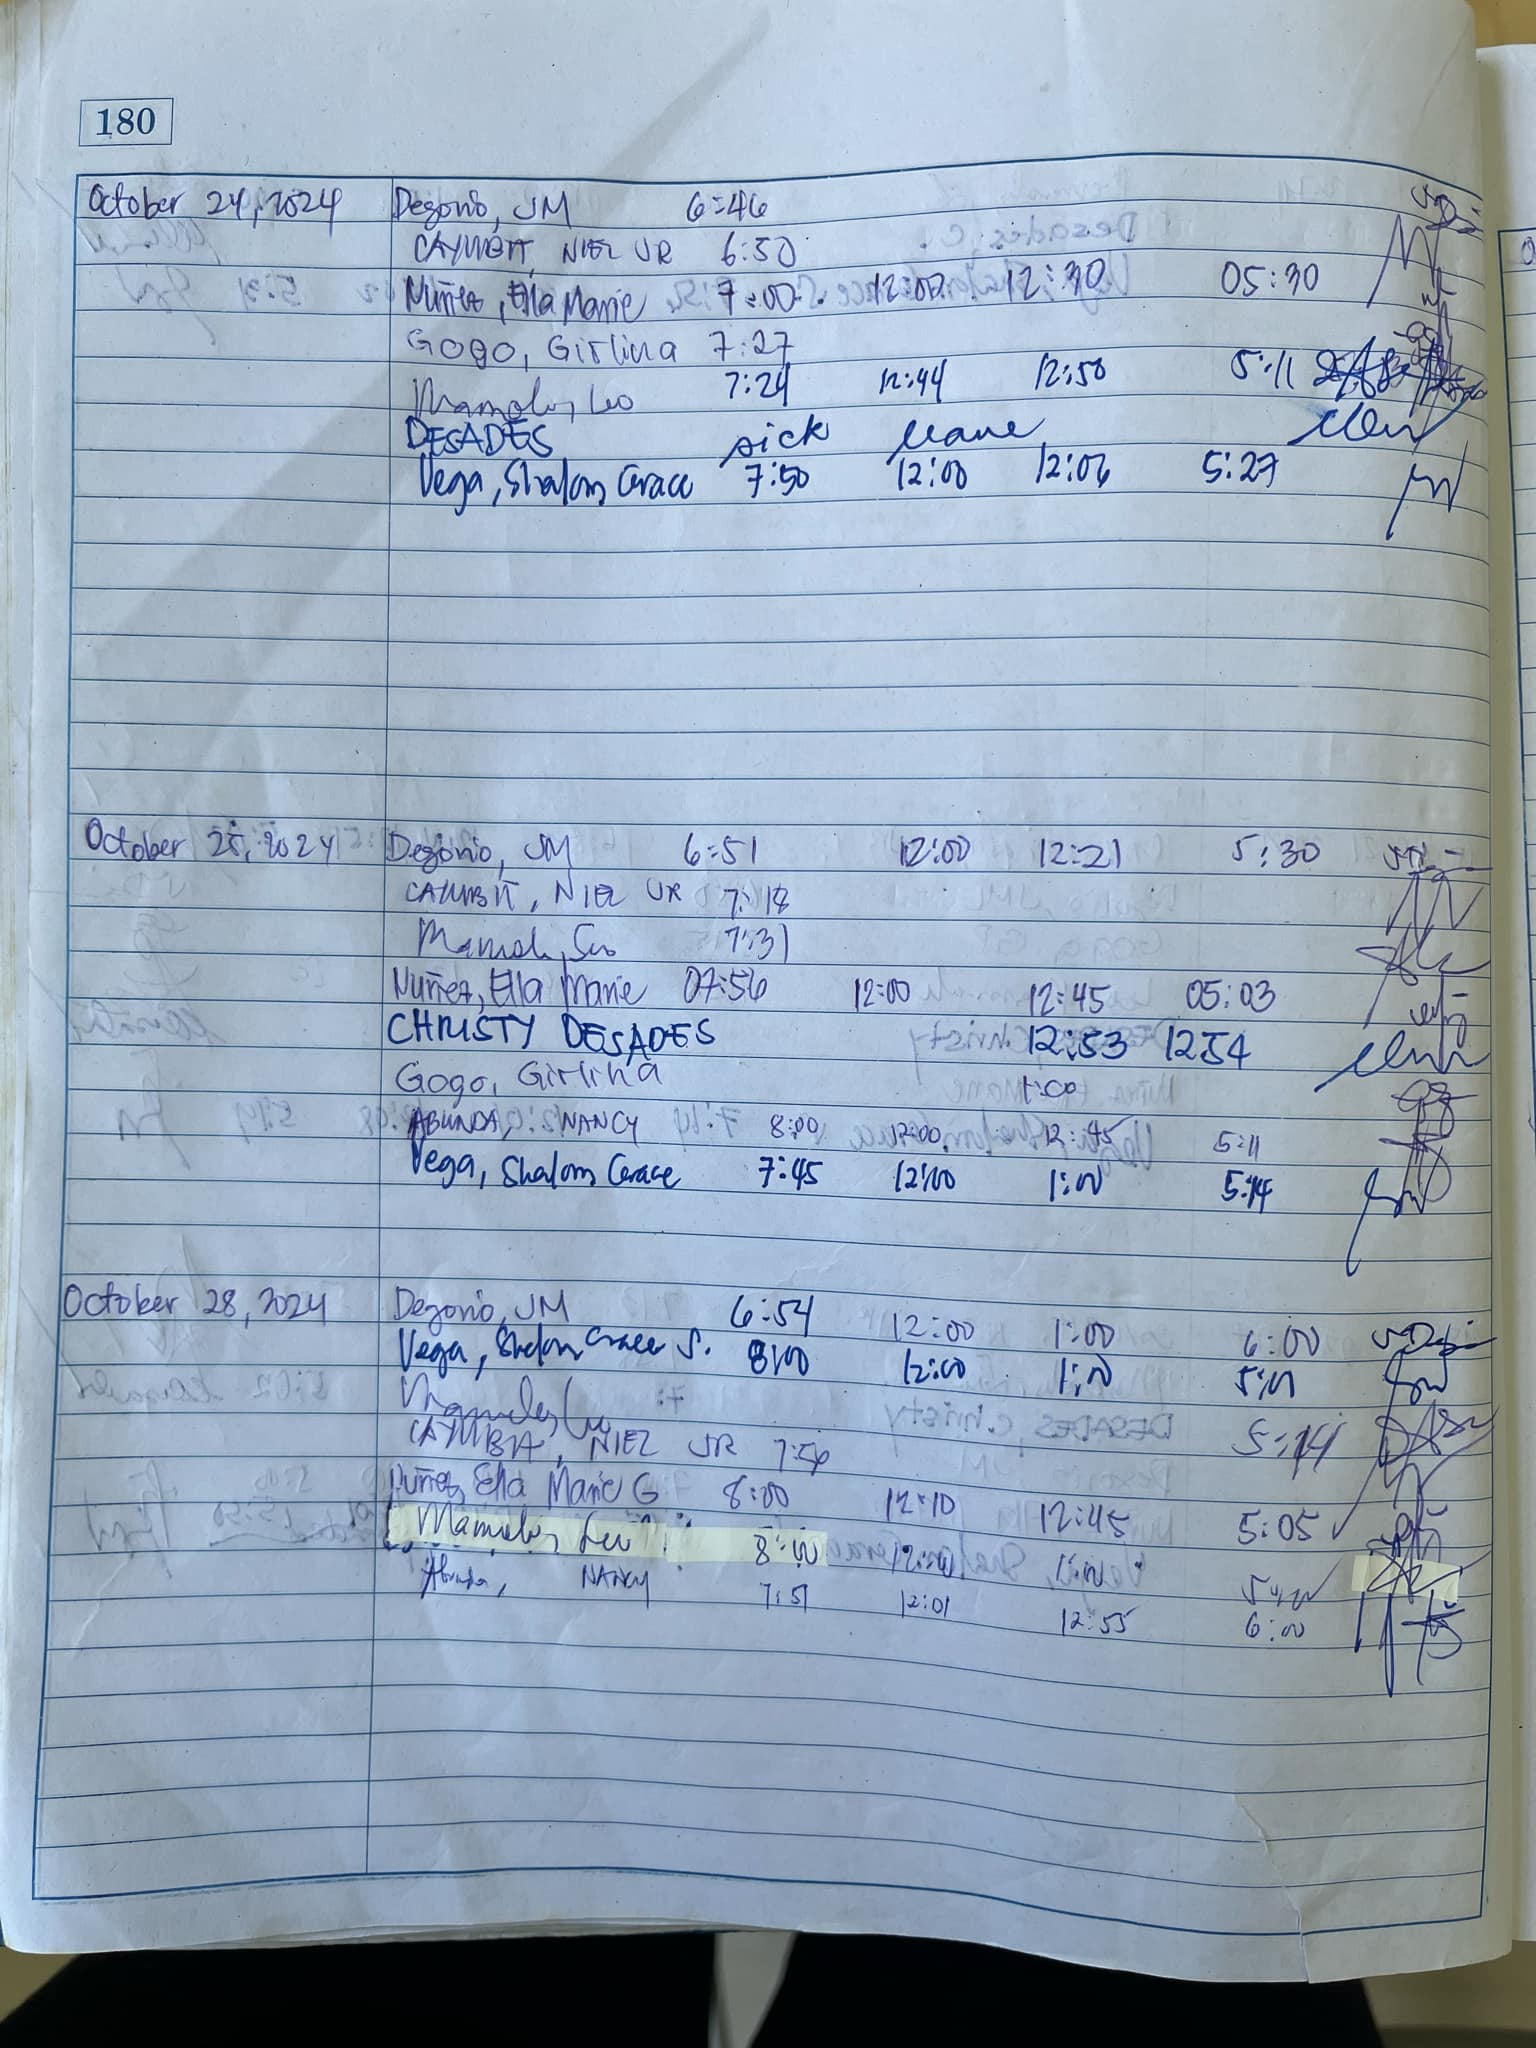 180
October 24, 2024 Degorio, JM 6:46
CAYMBIT, NIEL JR 6:50
Nuñez, Ella Marie 7:00 12:00 12:30 05:30
Gogo, Girlina 7:27
7:24 12:44 12:50 5:11
DESADES sick leave
Vega, Shalom Grace 7:50 12:00 12:06 5:27
October 25, 2024 Degorio, JM 6:51 12:00 12:21 5:30
CAYMBIT, NIEL JR 7:18
7:31
Nuñez, Ella Marie 07:56 12:00 12:45 05:03
CHRISTY DESADES 12:53 1254
Gogo, Girlina 1:00
ABUNDA, NANCY 8:00 12:00 12:45 5:11
Vega, Shalom Grace 7:45 12:00 1:00 5:14
October 28, 2024 Degorio, JM 6:54 12:00 1:00 6:00
Vega, Shalom Grace S. 8:00 12:00 1:00
5:14
NIEL JR 7:56
Nuñez, Ella Marie G 8:00 12:10 12:45 5:05
8:00 12:00 1:00
Abunda, NANCY 7:51 12:01 12:55 6:00